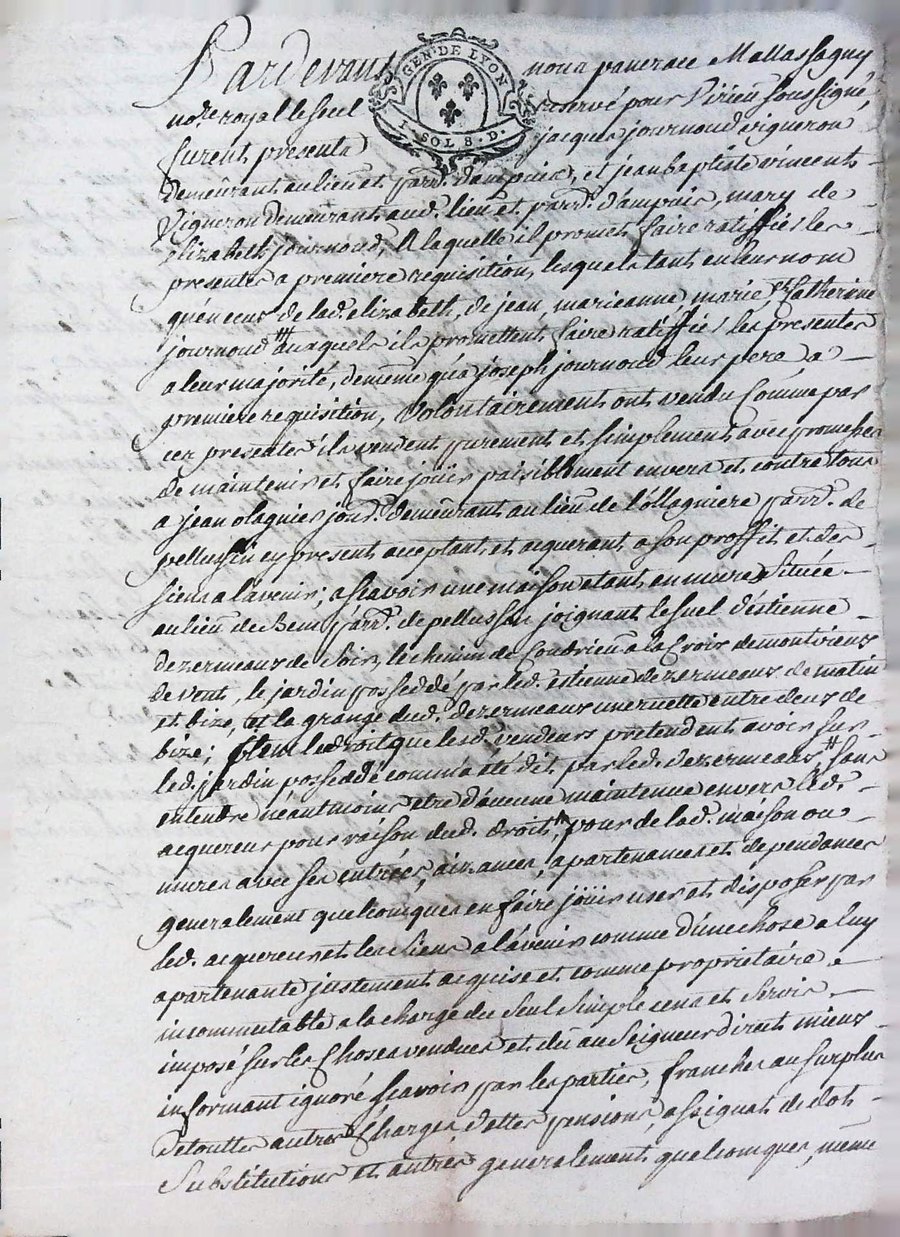 Pardevant nous pancrace Mallassagny
GEN. DE LYON
1. SOL 8. D.
no.re royal le seul reservé pour Virieu soussigné,
furent presents jacques journoud vigneron
demeurant au lieu et parr. d'ampuis, et jean baptiste vincent
vigneron demeurant aud. lieu et parr. d'ampuis, mary de
elizabeth journoud, a laquelle il promet faire ratiffier les
presentes a premiere requisition, lesquels tant en leur nom
qu'en ceux de lad. elizabeth, de jean, marieanne, marie, et Catherine
journoud auxquels ils promettent faire ratiffier les presentes
a leur majorité, de meme qu'a joseph journoud leur pere a
premiere requisition, volontairement ont vendu Comme par
ces presentes ils vendent purement et simplement avec promesse
de maintenir et faire joüir paisiblement envers et contre tous
a jean olagnier jour. demeurant au lieu de l'ollagniere parr. de
pellussin cy present acceptant et acquerant a son proffit et des
siens a l'avenir; a scavoir une maison etant en mures situeé
au lieu de parr. de pellussin joignant le suel d'étienne
dezermeaux de soir, le chemin de Condrieu a la Croix de montvieux
de vent, le jardin possedé par led. etienne dezermeaux de matin
et bize, et la grange dud. dezermeaux une ruette entre deux de
bize; Item le droit que lesd. vendeurs pretendent avoir sur
led. jardin possedé comme a été dit par led. dezermeaux, sans
entendre néantmoins etre d'aucune maintenue envers led.
acquereur pour raison dud. droit, pour de lad. maison ou
mures avec ses entrées, aizances, apartenances et dependances
generalement quelconques en faire joüir user et disposer par
led. acquereur et les siens a l'avenir comme d'une chose a luy
apartenante justement acquise et comme proprietaire
incommutable a la charge du seul simple cens et servis
imposé sur les choses vendues et dû au Seigneur direct mieux
informant ignoré scavoir par les parties, franches au surplus
de toutes autres Charges, dettes pensions, assignat de dot
Substitutions et autres generalement quelconques, même